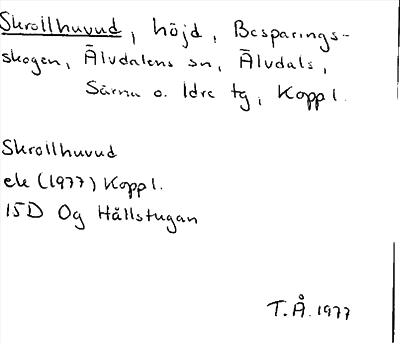 Skrollhuvud, höjd, Besparings-
skogen, Älvdalens sn, Älvdals,
Särna o. Idre tg, Koppl.
Skrollhuvud
ek (1977) Koppl.
15D 0g Hållstugan
T.Å. 1977